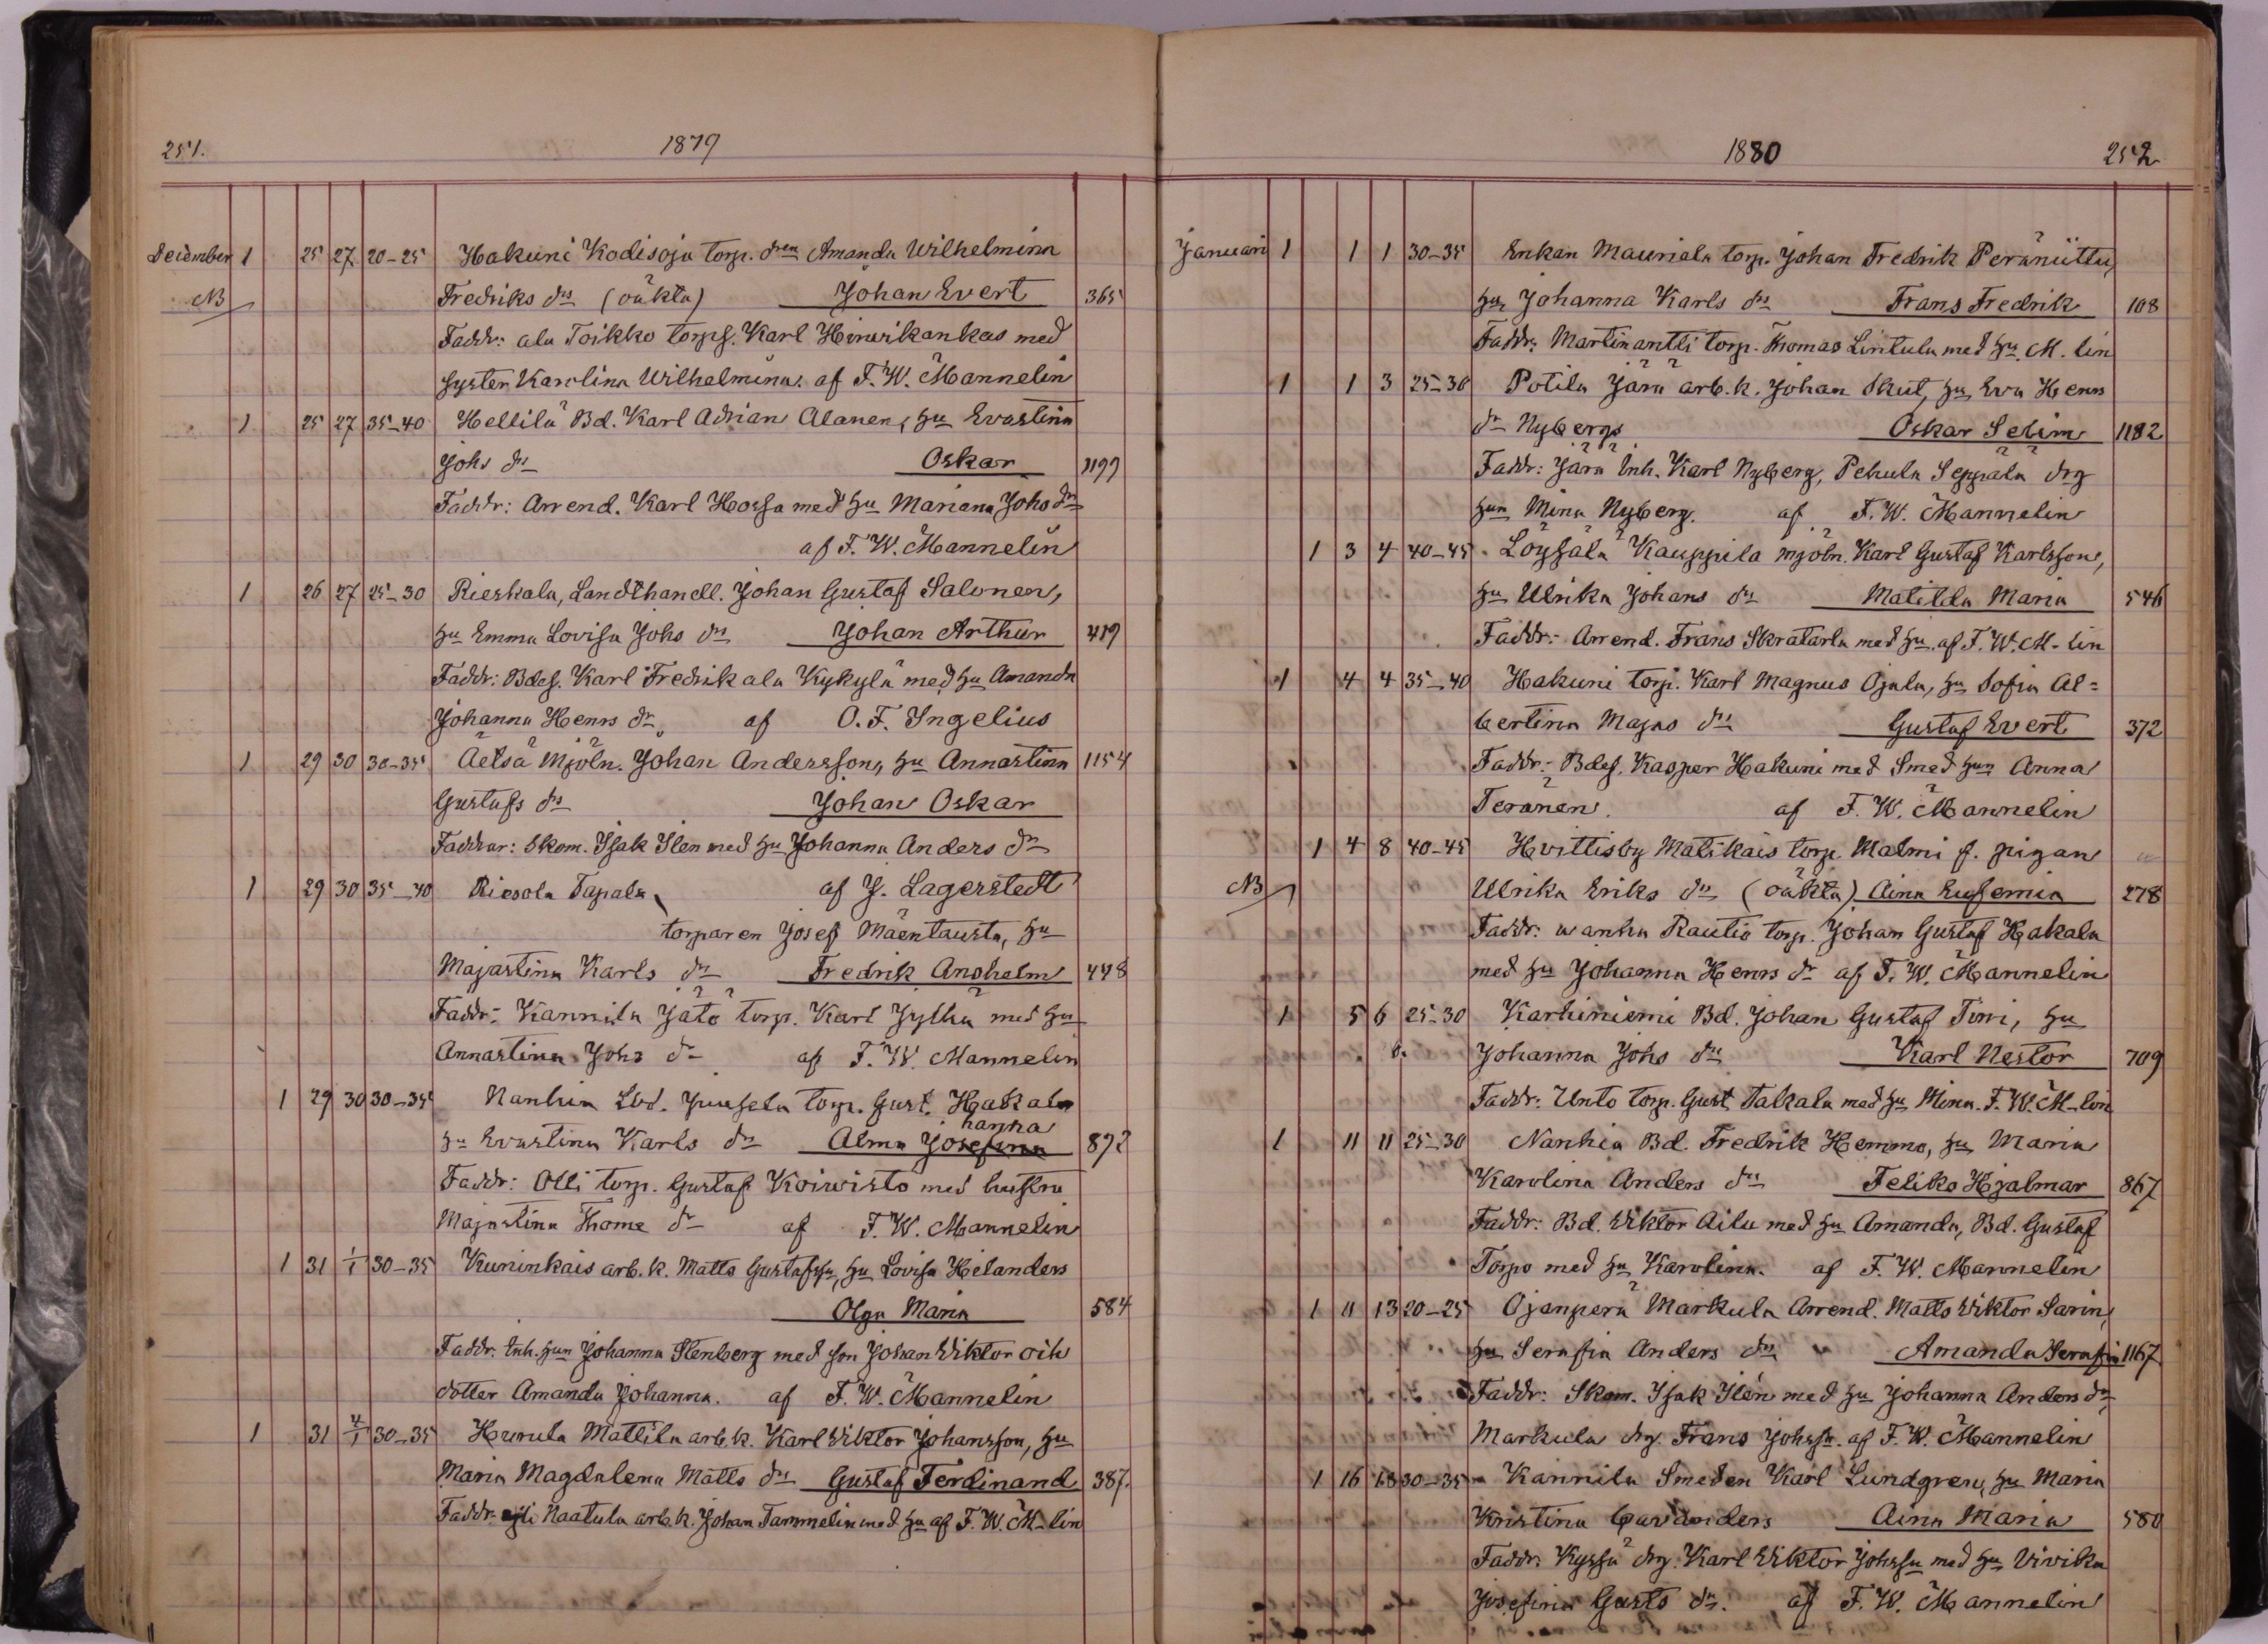 251. 1879
December 1 25 27 20-25 Hakuni Kodisoja torp. dren Amanda Wilhelmina
NB Fredriks dr (oäkta) Johan Evert 365
Faddr: ala Toikko torps. Karl Hirwikankas med
syster Karolina Wilhelmina. af F. W. Mannelin
1 25 27 35-40 Hellilä Bd. Karl Adrian Alanen, hu Evastina
Johs dr Oskar 1199
Faddr: Arrend. Karl Hossa med hu Mariana Johs dr
af F. W. Mannelin
1 26 27 25-30 Rieskala, Landthandl. Johan Gustaf Salonen,
hu Emma Lovisa Johs dr Johan Arthur 419
Faddr: Bdes. Karl Fredrik ala Kykylä med hu Amanda
Johanna Henrs dr. af O. F. Ingelius
1 29 30 30-35 Äetsä Mjöln. Johan Andersson, hu Annastina 1154
Gustafs dr Johan Oskar
Faddrar: Skom. Isak Ilen med hu Johanna Anders dr
1 29 30 35-40 Riesola Tapala, af J. Lagerstedt
torparen Josef Mäentausta, hu
Majastina Karls dr Fredrik Anshelm 448
Faddr: Kannila Jätö torp. Karl Jylhä med hu
Annastina Johs dr af F. W. Mannelin
1 29 30 30-35 Nanhia Lvd. Juusela torp. Gust. Hakala
hanna
hu Evastina Karls dr Alma Josefina 892
Faddr: Olli torp. Gustaf Koiwisto med hustru
Majastina Thome dr af F. W. Mannelin
1 31 1/1 30-35 Kuninkais arb. k. Matts Gustafssn, hu Lovisa Helanders
Olga Maria 584
Faddr. Inh. hun Johanna Stenberg med son Johan Wiktor och
dotter Amanda Johanna. af F. W. Mannelin
1 31 4/1 30-35 Hurula Mattila arb. k. Karl Wiktor Johansson, hu
Maria Magdalena Matts dr Gustaf Ferdinand 387.
Faddr. yli Naatula arb. k. Johan Tammelin med hu af F. W. M-lin
1880 252
Januari 1 1 1 30-35 Enkan Mauriala torp. Johan Fredrik Peräniittu,
hu Johanna Karls dr Frans Fredrik 108
Faddr: Martinantti torp. Thomas Lintula med hu M. lin
1 1 3 25-30 Potila Järä arb. k. Johan Skut, hu Eva Henrs
dr Nybergs Oskar Selim 1182
Faddr: Järä Inh. Karl Nyberg, Pehula Seppälä drg
hun Mina Nyberg. af F. W. Mannelin
1 3 4 40-45 Löysälä Kauppila mjöln. Karl Gustaf Karlsson,
hu Ulrika Johans dr Matilda Maria 546
Faddr: Arrend. Frans Skratarla med hu. af F. W. M-lin
1 4 4 35-40 Hakuni torp. Karl Magnus Ojala, hu Sofia Al=
bertina Majas dr Gustaf Evert 372
Faddr: Bdes. Kasper Hakuni med Smed hun Anna
Teränen. af F. W. Mannelin
1 4 8 40-45 Hvittisby Matikais torp. Malmi f. pigan
NB Ulrika Eriks dr (oäkta) Aina Eufemia 278
Faddr: wanha Rautio torp. Johan Gustaf Hakala
med hu Johanna Henrs dr af F. W. Mannelin
1 5 6 25-30 Karhiniemi Bd. Johan Gustaf Tiiri, hu
Johanna Johs dr Karl Nestor 709
Faddr: Unto torp. Gust. Takala med hu Mina. F. W. M-lin
1 11 11 25-30 Nanhia Bd. Fredrik Hemmo, hu Maria
Karolina Anders dr Feliks Hjalmar 867
Faddr: Bd. Wiktor Aitu med hu Amanda, Bd. Gustaf
Torpo med hu Karolina. af F. W. Mannelin
1 11 13 20-25 Ojanperä Markula Arrend. Matts Wiktor Sarin,
hu Serafia Anders dr Amanda Serafia 1167
Faddr: Skom. Isak Ilén med hu Johanna Anders dr,
Markula drg. Frans Johssn. af F. W. Mannelin
1 16 18 30-35 Kannila Smeden Karl Lundgren, hu Maria
Kristina Aina Maria 580
Faddr. Kyssä drg. Karl Wiktor Johssn med hu Vivika
Josefina Gusts dr. af F. W. Mannelin